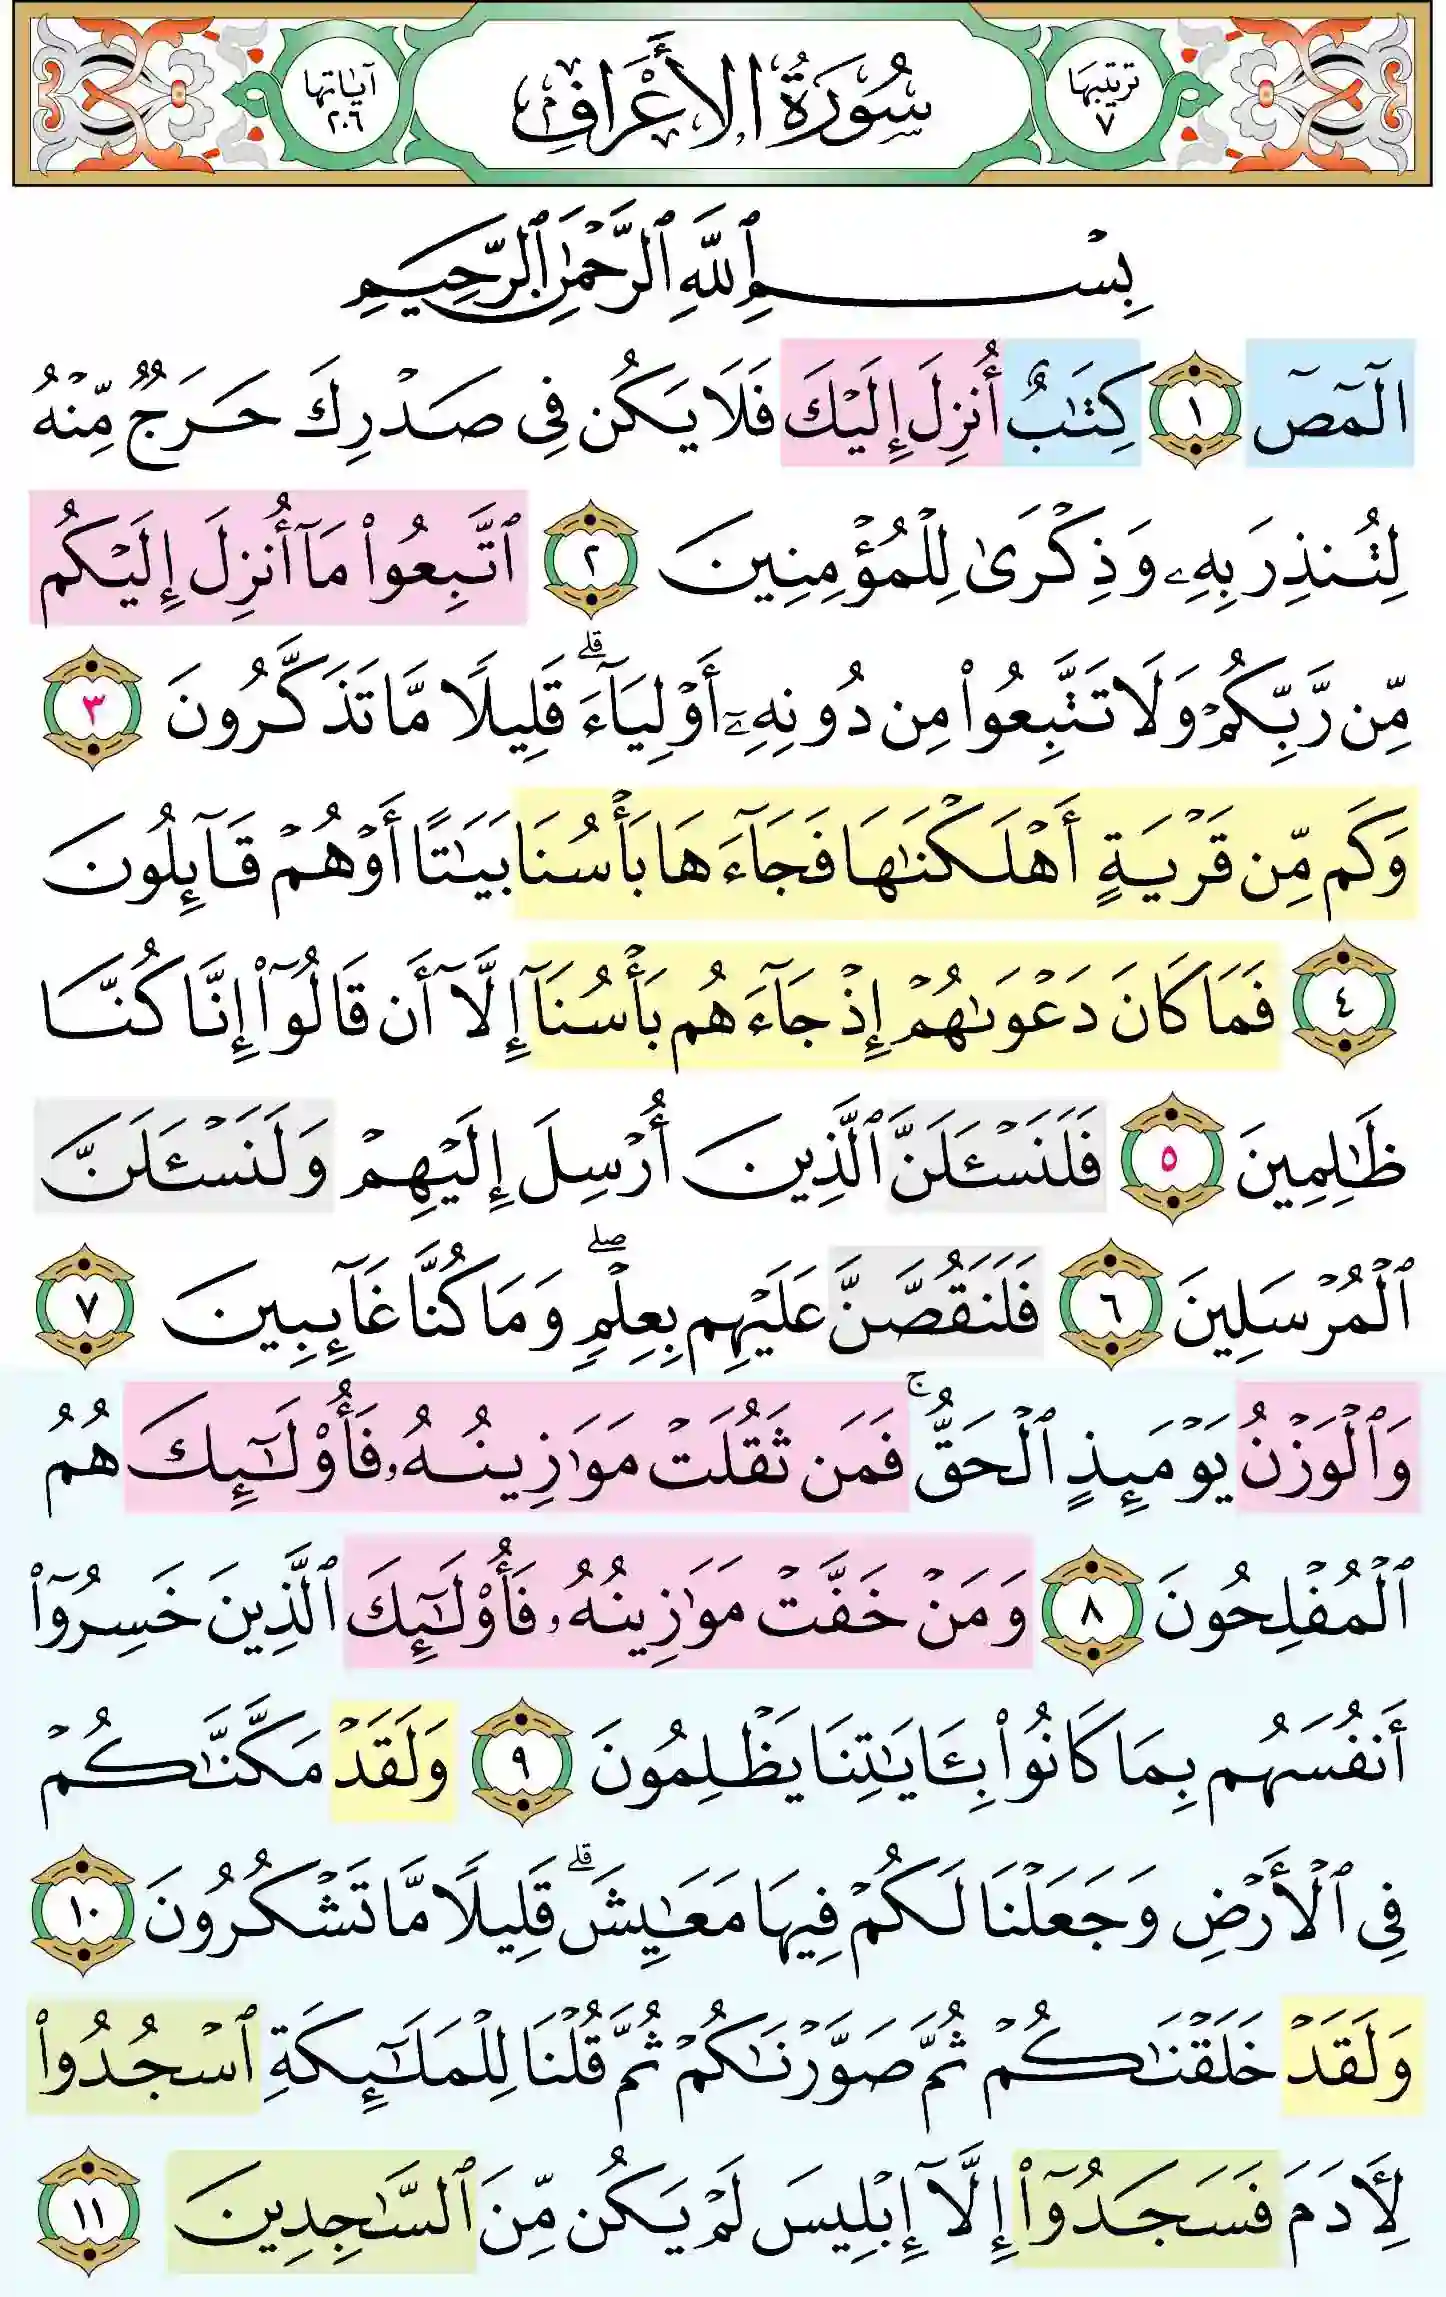 ترتيبها ٧
سُورَةُ الأَعْرَافِ
آياتها ٢٠٦
بِسْمِ ٱللَّهِ ٱلرَّحْمَٰنِ ٱلرَّحِيمِ
الٓمٓصٓ ١ كِتَٰبٌ أُنزِلَ إِلَيْكَ فَلَا يَكُن فِى صَدْرِكَ حَرَجٌ مِّنْهُ
لِتُنذِرَ بِهِۦ وَذِكْرَىٰ لِلْمُؤْمِنِينَ ٢ ٱتَّبِعُوا۟ مَآ أُنزِلَ إِلَيْكُم
مِّن رَّبِّكُمْ وَلَا تَتَّبِعُوا۟ مِن دُونِهِۦٓ أَوْلِيَآءَ ۗ قَلِيلًا مَّا تَذَكَّرُونَ ٣
وَكَم مِّن قَرْيَةٍ أَهْلَكْنَٰهَا فَجَآءَهَا بَأْسُنَا بَيَٰتًا أَوْ هُمْ قَآئِلُونَ
٤ فَمَا كَانَ دَعْوَىٰهُمْ إِذْ جَآءَهُم بَأْسُنَآ إِلَّآ أَن قَالُوٓا۟ إِنَّا كُنَّا
ظَٰلِمِينَ ٥ فَلَنَسْـَٔلَنَّ ٱلَّذِينَ أُرْسِلَ إِلَيْهِمْ وَلَنَسْـَٔلَنَّ
ٱلْمُرْسَلِينَ ٦ فَلَنَقُصَّنَّ عَلَيْهِم بِعِلْمٍ ۖ وَمَا كُنَّا غَآئِبِينَ ٧
وَٱلْوَزْنُ يَوْمَئِذٍ ٱلْحَقُّ ۚ فَمَن ثَقُلَتْ مَوَٰزِينُهُۥ فَأُو۟لَٰٓئِكَ هُمُ
ٱلْمُفْلِحُونَ ٨ وَمَنْ خَفَّتْ مَوَٰزِينُهُۥ فَأُو۟لَٰٓئِكَ ٱلَّذِينَ خَسِرُوٓا۟
أَنفُسَهُم بِمَا كَانُوا۟ بِـَٔايَٰتِنَا يَظْلِمُونَ ٩ وَلَقَدْ مَكَّنَّٰكُمْ
فِى ٱلْأَرْضِ وَجَعَلْنَا لَكُمْ فِيهَا مَعَٰيِشَ ۗ قَلِيلًا مَّا تَشْكُرُونَ ١٠
وَلَقَدْ خَلَقْنَٰكُمْ ثُمَّ صَوَّرْنَٰكُمْ ثُمَّ قُلْنَا لِلْمَلَٰٓئِكَةِ ٱسْجُدُوا۟
لِـَٔادَمَ فَسَجَدُوٓا۟ إِلَّآ إِبْلِيسَ لَمْ يَكُن مِّنَ ٱلسَّٰجِدِينَ ١١